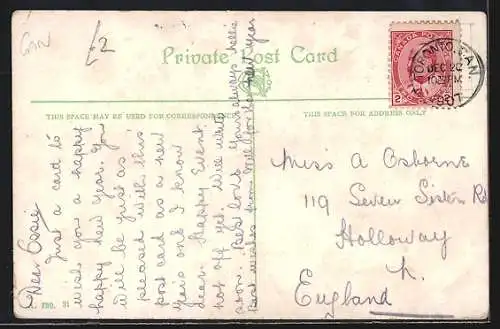 Can
2
Private Post Card
THIS SPACE MAY BE USED FOR CORRESPONDENCE
THIS SPACE FOR ADDRESS ONLY
CANADA POSTAGE
2
TORONTO, CAN.
DEC 20
PM
1907
Dear Ossie
Just a card to
wish you a happy
happy new year. You
will be just as
pleased with this
post card as a new
Year's one I know
dear. Happy Event
not off yet. Will write
soon. Best love yours always Nellie
Best wishes from Will for the new year
Miss A Osborne
119 Seven Sisters Rd
Holloway
N.
England